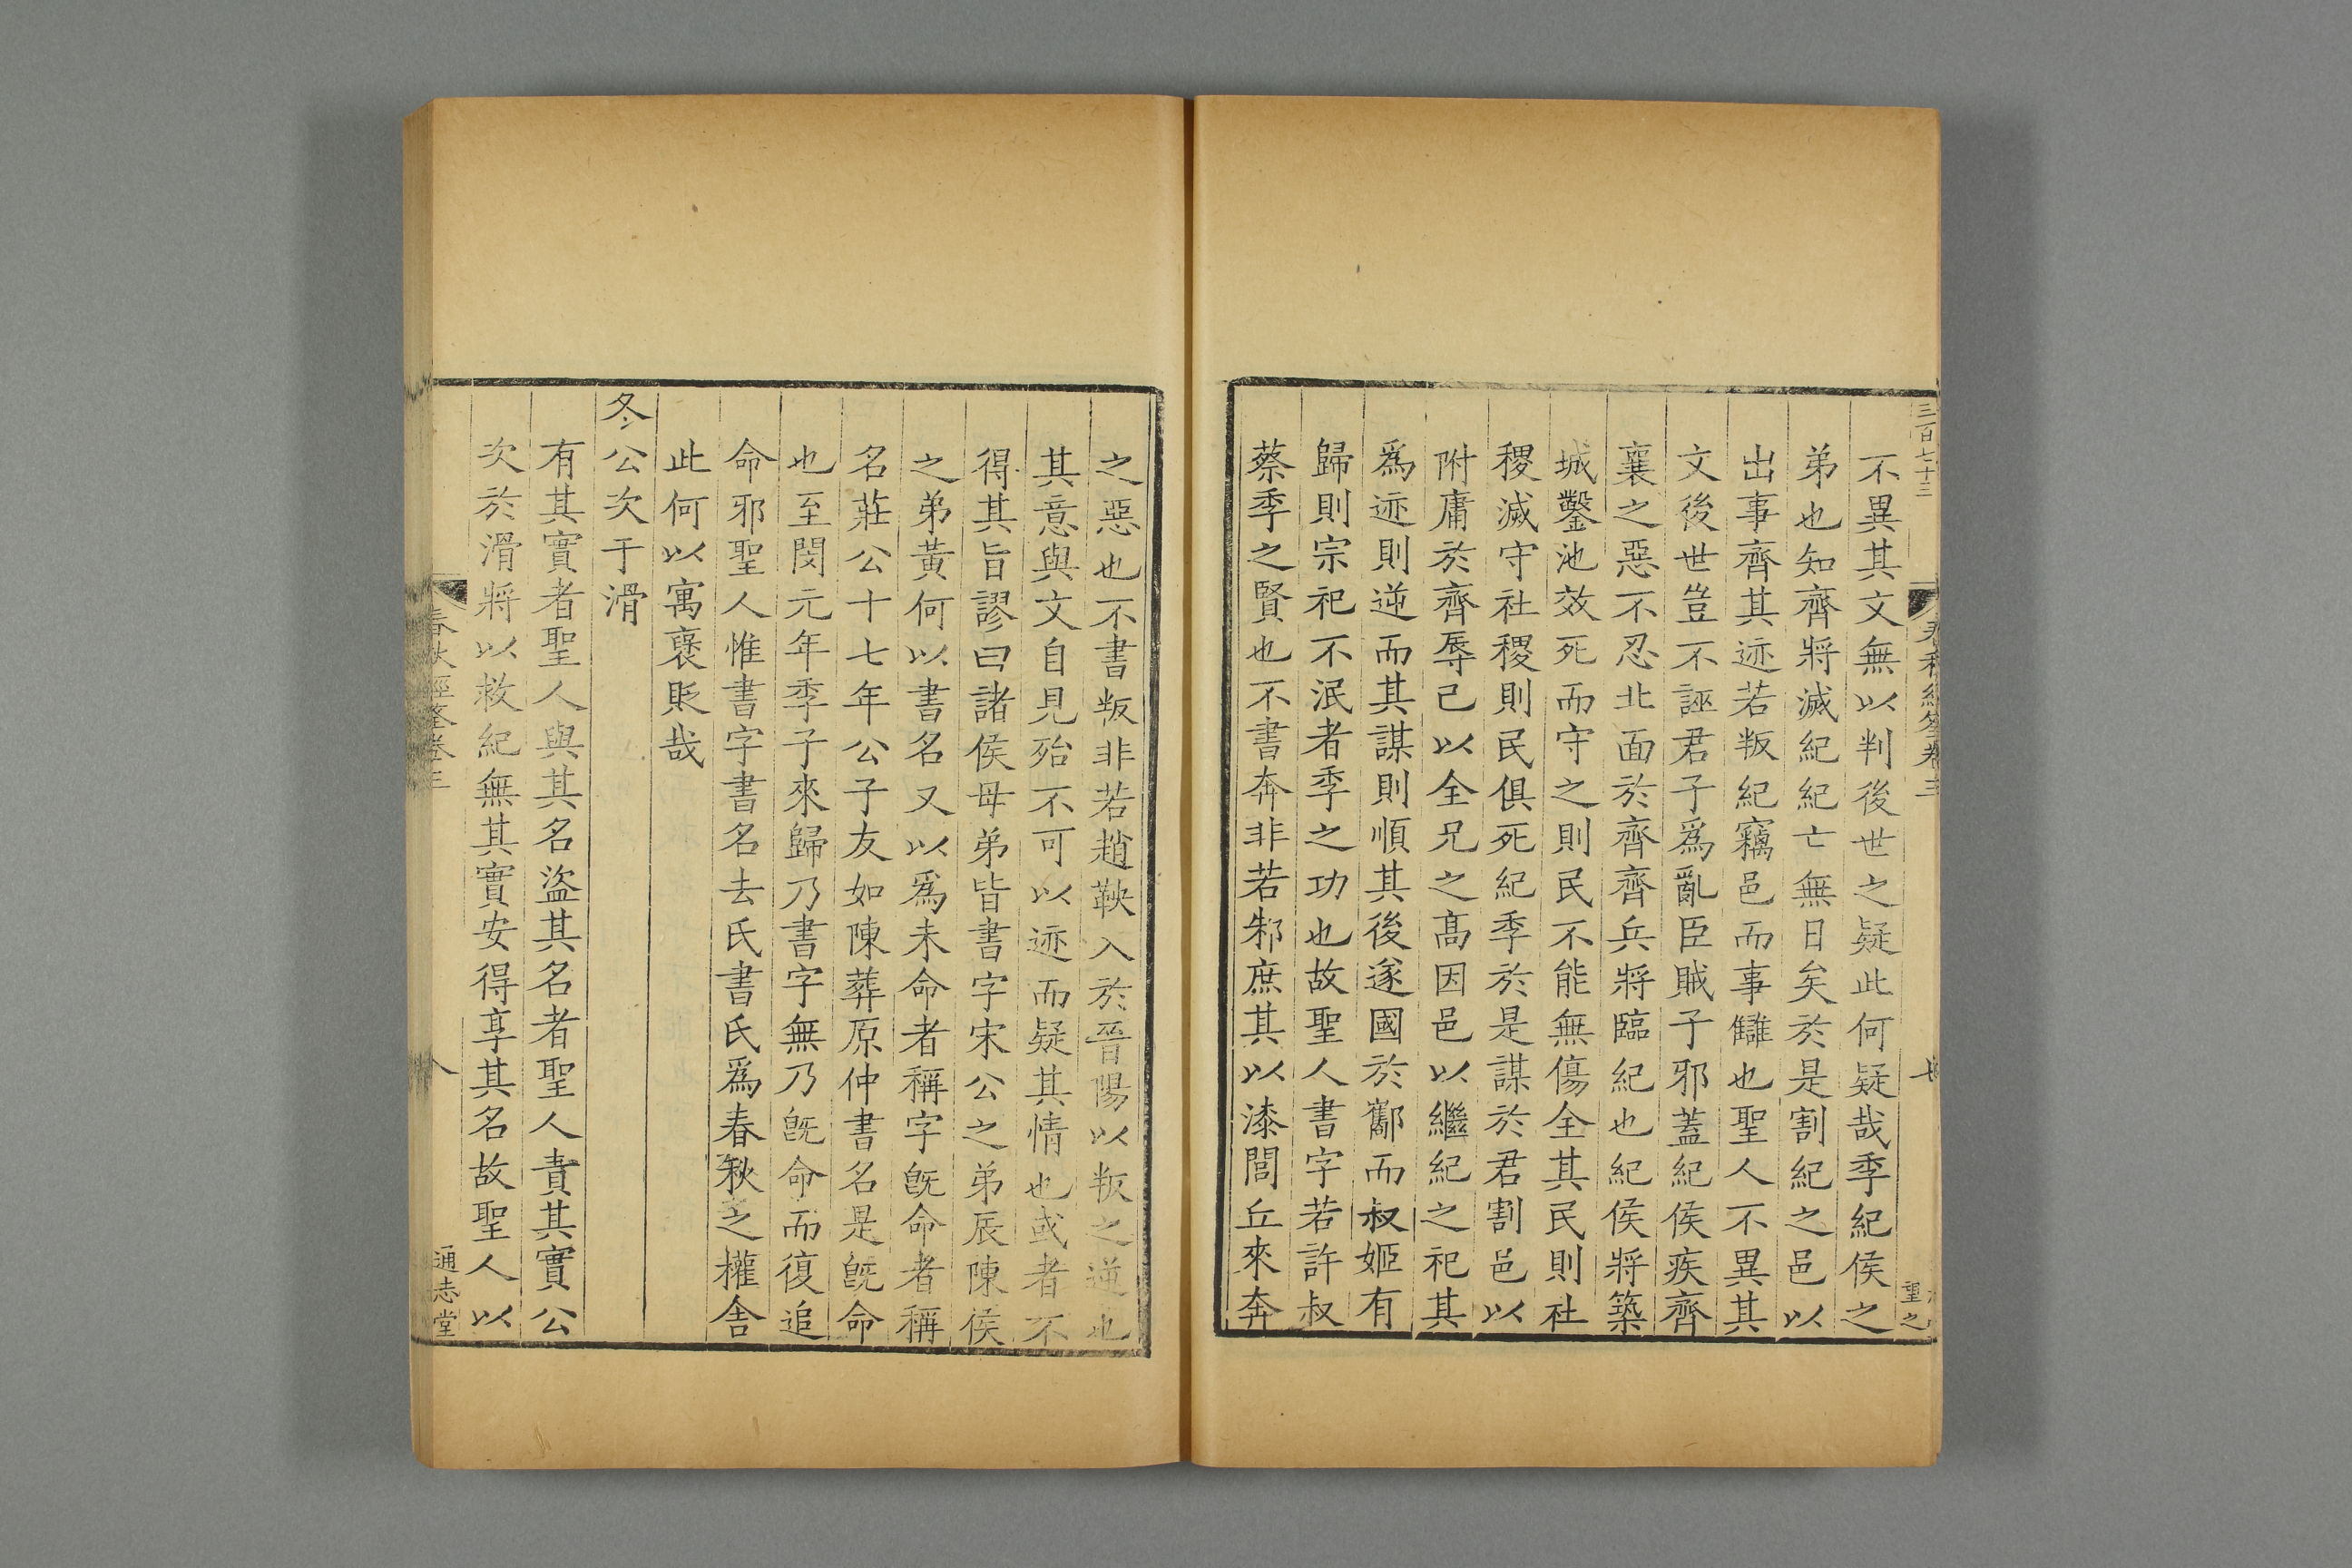 三百七十三
春秋經筌卷三
七
重之
不異其文無以判後世之疑此何疑哉季紀侯之
弟也知齊將滅紀紀亡無日矣於是割紀之邑以
出事齊其迹若叛紀竊邑而事讎也聖人不異其
文後世豈不誣君子爲亂臣賊子邪蓋紀侯疾齊
襄之惡不忍北面於齊齊兵將臨紀也紀侯將築
城鑿池效死而守之則民不能無傷全其民則社
稷滅守社稷則民俱死紀季於是謀於君割邑以
附庸於齊辱己以全兄之髙因邑以繼紀之祀其
爲迹則逆而其謀則順其後遂國於酅而叔姬有
歸則宗祀不泯者季之功也故聖人書字若許叔
蔡季之賢也不書奔非若邾庶其以漆閭丘來奔
之惡也不書叛非若趙鞅入於晉陽以叛之逆也
其意與文自見殆不可以迹而疑其情也或者不
得其旨謬曰諸侯母弟皆書字宋公之弟辰陳侯
之弟黃何以書名又以爲未命者稱字旣命者稱
名莊公十七年公子友如陳葬原仲書名是旣命
也至閔元年季子來歸乃書字無乃旣命而復追
命邪聖人惟書字書名去氏書氏爲春秋之權舍
此何以寓襃貶哉
冬公次于滑
有其實者聖人與其名盜其名者聖人責其實公
次於滑將以救紀無其實安得享其名故聖人以
春秋經筌卷三
八
通志堂